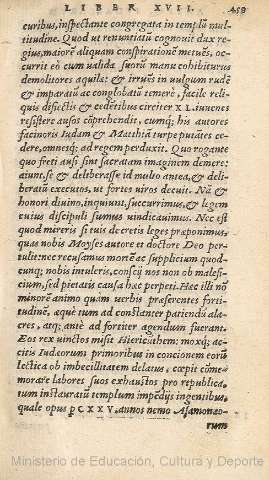 LIBER XVII. 459
curibus, inspectante congregata in templũ mul-
titudine. Quod ut renuntiatũ cognouit dux re-
gius, maiorẽ aliquam conspirationẽ metuẽs, occur-
rit eò cum ualida suorũ manu cohibiturus
demolitores aquilæ: & irruẽs in uulgum rude
& imparatũ ac conglobatũ temerè, facile reli-
quis disiectis & cedẽtibus circiter XL iuuenes
resistere ausos cõprehendit, cumq; his autores
facinoris Iudam & Matthiã turpe putãtes ce-
dere, omnesq; ad regem perduxit. Quo rogante
quo freti ausi sint sacratam imaginem demere:
aiunt, se & deliberasse id multo antea, & deli-
beratũ executos, ut fortes uiros decuit. Nã &
honori diuino, inquiunt, succurrimus, & legem
cuius discipuli sumus uindicauimus. Nec est
quod mireris si tuis decretis leges præponimus,
quas nobis Moyses autore et doctore Deo per-
tulit: nec recusamus mortẽ ac supplicium quod-
cunq; nobis intuleris, conscij nos non ob malefi-
cium, sed pietatis causa hæc perpeti. Hæc illi nõ
minorẽ animo quàm uerbis præferentes forti-
tudinẽ, æquè tum ad constanter patiendũ ala-
cres, atq; antè ad fortiter agendum fuerant.
Eos rex uinctos misit Hiericuthem: moxq; ac-
citis Iudæorum primoribus in concionem eorũ
lectica ob imbecillitatem delatus, cœpit cõme-
morare labores suos exhaustos pro republica,
tum instauratũ templum impẽdijs ingentibus,
quale opus CXXV. annos nemo Asamonæo-
rum
Ministerio de Educación, Cultura y Deporte